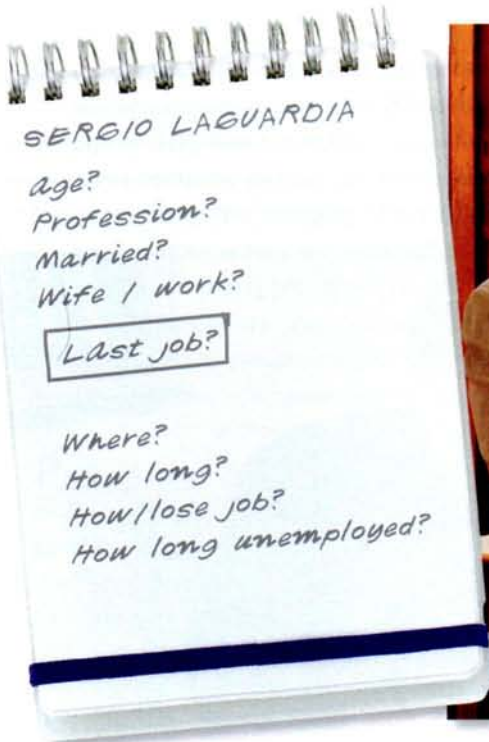 SERGIO LAGUARDIA
Age?
Profession?
Married?
Wife / work?
Last job?
Where?
How long?
How/lose job?
How long unemployed?